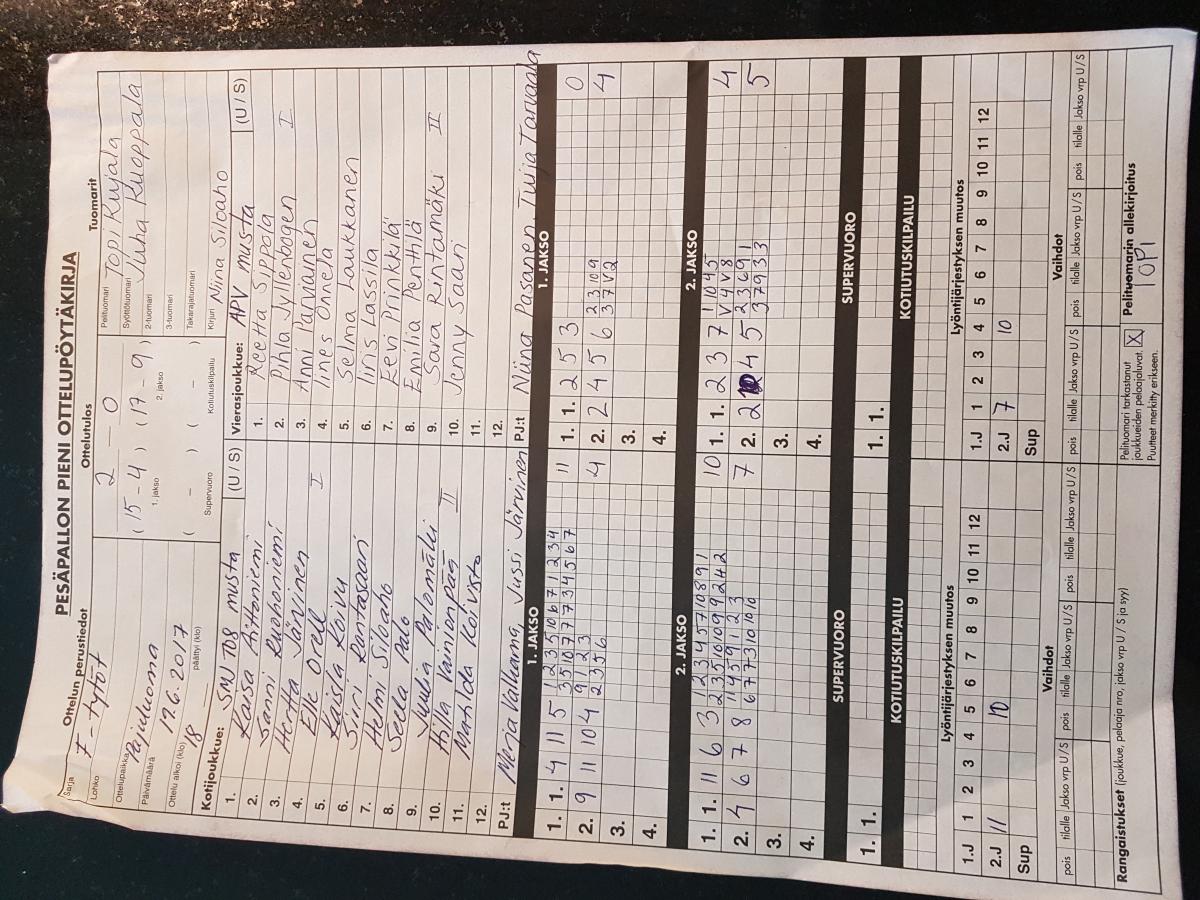 PESÄPALLON PIENI OTTELUPÖYTÄKIRJA
Ottelun perustiedot
Ottelutulos
Tuomarit
Sarja
F-tytöt
Lohko
Ottelupaikka
Pajuluoma
Päivämäärä
19.6.2017
Ottelu alkoi (klo) 18
päättyi (klo)
2 – 0
(15 – 4) (17 – 9)
1. jakso
2. jakso
( – ) ( – )
Supervuoro
Kotiutuskilpailu
Pelituomari Topi Kujala
Syöttötuomari Juha Kuoppala
2-tuomari
3-tuomari
Takarajatuomari
Kirjuri Niina Siloaho
Kotijoukkue: SMJ T08 musta (U / S)
1. Kaisa Aittoniemi
2. Sanni Ruohoniemi
3. Hertta Järvinen
4. Elle Orell I
5. Kaisla Koivu
6. Siiri Rantasaari
7. Helmi Siloaho
8. Seela Palo
9. Juulia Palomäki
10. Ailla Vainionpää II
11. Matilda Koivisto
12.
PJ:t Merja Valkama, Jussi Järvinen
Vierasjoukkue: APV musta (U / S)
1. Reetta Suppola
2. Pihla Jyllenbogen I
3. Anni Parviainen
4. Iines Onnela
5. Selma Laukkanen
6. Iiris Lassila
7. Eevi Prinkkilä
8. Emilia Penttilä
9. Sara Rintamäki II
10. Jenny Saari
11.
12.
PJ:t Niina Pasanen, Tuija Tarvaala
1. JAKSO
1. 1. 4 11 5 1 2 3 5 10 6 7 1 2 3 4 11
3 5 10 7 7 7 3 4 5 6 7
2. 9 11 10 4 9 1 2 3 4
2 3 5 6
3.
4.
1. JAKSO
1. 1. 2 5 3 0
2. 2 4 5 6 2 3 10 9 4
3 7 V 2
3.
4.
2. JAKSO
1. 1. 11 6 3 1 2 3 4 5 7 10 8 9 1 10
2 3 5 10 10 9 9 2 4 2
2. 4 6 7 8 11 4 5 9 1 2 3 7
6 7 7 3 10 10 10
3.
4.
2. JAKSO
1. 1. 2 3 7 1 10 4 5 4
V 4 V 8
2. 2 4 5 2 3 6 9 1 5
3 7 9 3 3
3.
4.
SUPERVUORO
1. 1.
SUPERVUORO
1. 1.
KOTIUTUSKILPAILU
KOTIUTUSKILPAILU
Lyöntijärjestyksen muutos
1.J 1 2 3 4 5 6 7 8 9 10 11 12
2.J 11 10
Sup
Lyöntijärjestyksen muutos
1.J 1 2 3 4 5 6 7 8 9 10 11 12
2.J 7 10
Sup
Vaihdot
pois tilalle Jakso vrp U / S pois tilalle Jakso vrp U / S pois tilalle Jakso vrp U / S
Vaihdot
pois tilalle Jakso vrp U / S pois tilalle Jakso vrp U / S pois tilalle Jakso vrp U / S
Rangaistukset (joukkue, pelaaja nro, jakso vrp, U / S ja syy)
Pelituomari tarkastanut
joukkueiden pelaajaluvat. X
Puutteet merkitty erikseen.
Pelituomarin allekirjoitus
TOPI